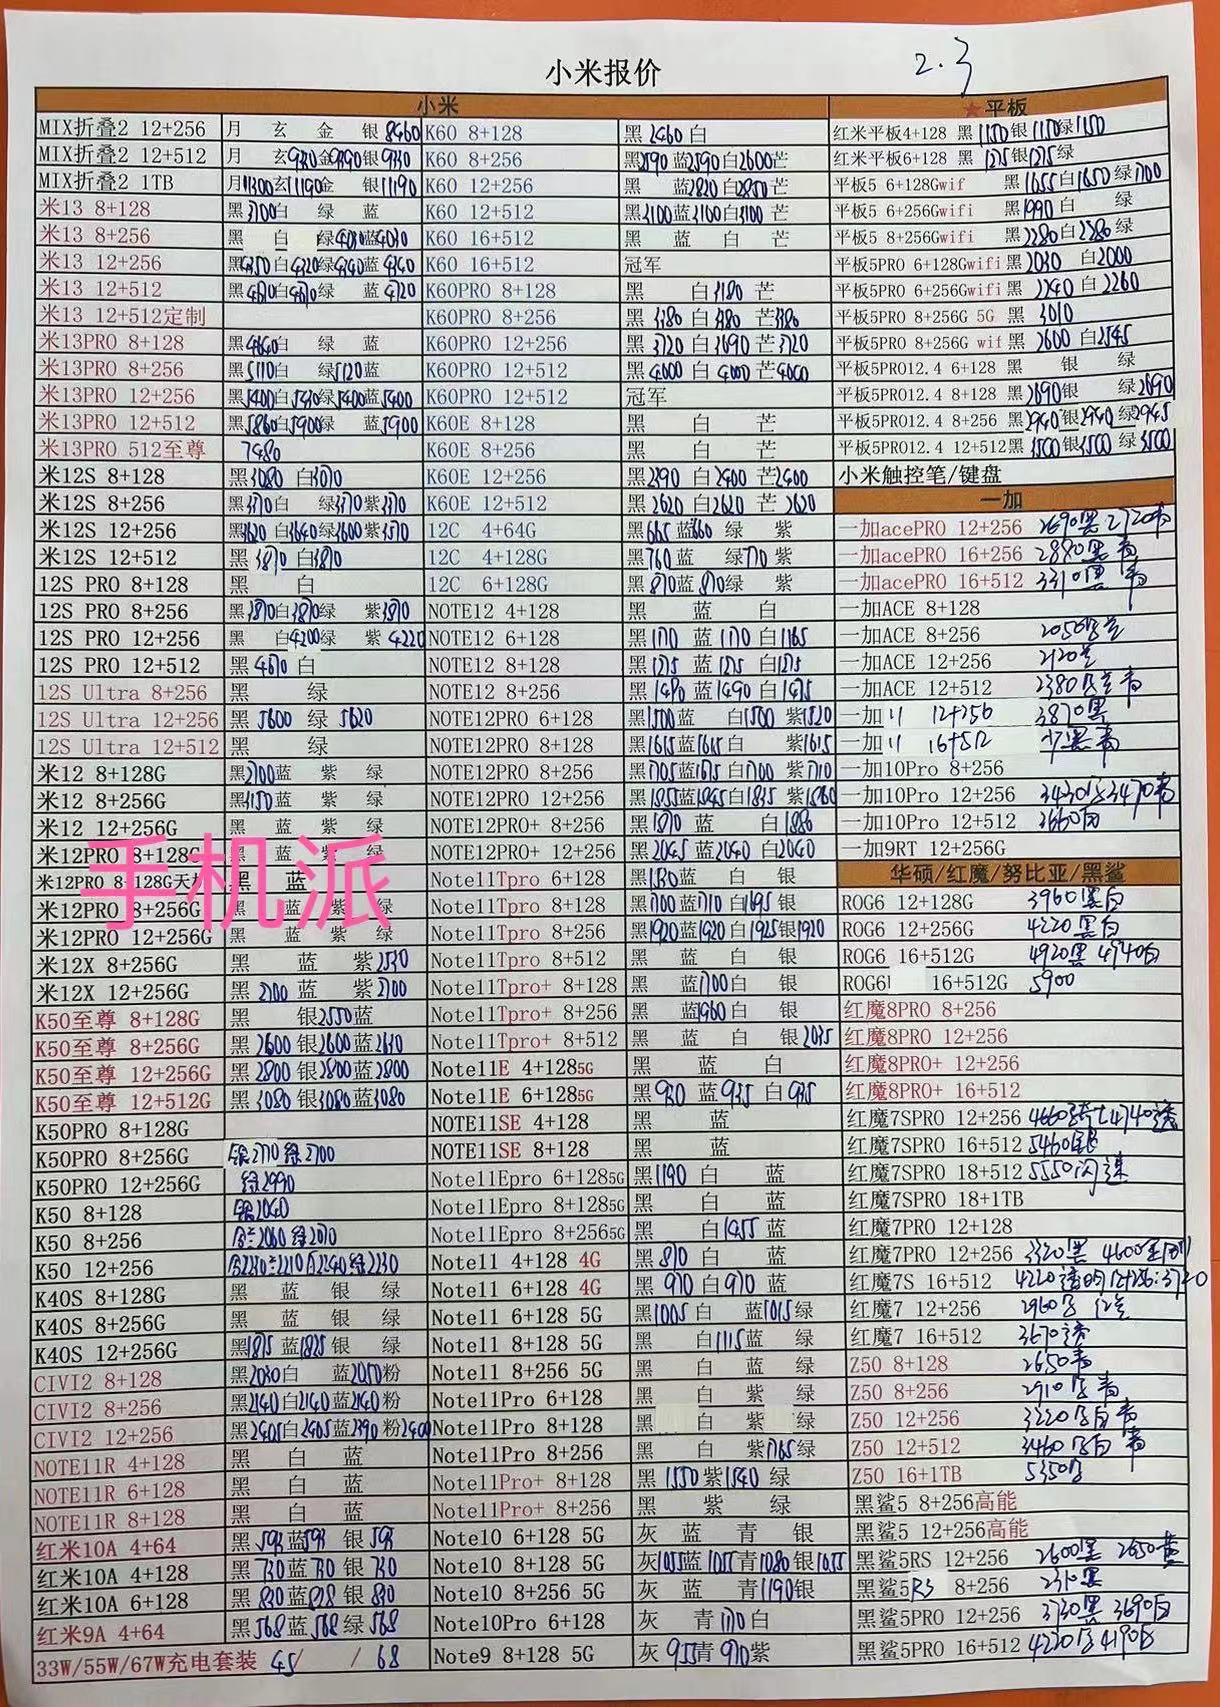 小米报价
2.3
小米
MIX折叠2 12+256 月 玄 金 银8460
MIX折叠2 12+512 月 玄 金 银
MIX折叠2 1TB 月 玄11190金 银11190
米13 8+128 黑3700白 绿 蓝
米13 8+256 黑 白 绿 蓝4030
米13 12+256 黑 白4320绿 蓝4340
米13 12+512 黑4670白 绿 蓝4720
米13 12+512定制
米13PRO 8+128 黑4640白 绿 蓝
米13PRO 8+256 黑5110白 绿5120蓝
米13PRO 12+256 黑5400白 绿5400蓝5400
米13PRO 12+512 黑5860白5900绿 蓝5900
米13PRO 512至尊 7480
米12S 8+128 黑3080 白3070
米12S 8+256 黑3370白 绿3370紫3370
米12S 12+256 黑3620白3640绿3600紫3570
米12S 12+512 黑3870白3870
12S PRO 8+128 黑 白
12S PRO 8+256 黑3870白3870绿 紫3870
12S PRO 12+256 黑 白4200绿 紫4220
12S PRO 12+512 黑4670 白
12S Ultra 8+256 黑 绿
12S Ultra 12+256 黑5600 绿5620
12S Ultra 12+512 黑 绿
米12 8+128G 黑2700蓝 紫 绿
米12 8+256G 黑3150蓝 紫 绿
米12 12+256G 黑 蓝 紫 绿
米12PRO 8+128G 黑 蓝 紫 绿
米12PRO 8+128G天玑 黑 蓝
米12PRO 8+256G 黑 蓝 紫 绿
米12PRO 12+256G 黑 蓝 紫 绿
米12X 8+256G 黑 蓝 紫2530
米12X 12+256G 黑2700 蓝 紫2700
K50至尊 8+128G 黑 银2550蓝
K50至尊 8+256G 黑2600银2600蓝2610
K50至尊 12+256G 黑2800银2800蓝2800
K50至尊 12+512G 黑3080银3080蓝3080
K50PRO 8+128G
K50PRO 8+256G 银2770绿2700
K50PRO 12+256G 绿2990
K50 8+128 银2040
K50 8+256 绿2070
K50 12+256 绿2230
K40S 8+128G 黑 蓝 银 绿
K40S 8+256G 黑 蓝 银 绿
K40S 12+256G 黑1875蓝1825银 绿
CIVI2 8+128 黑2030白 蓝2050粉
CIVI2 8+256 黑2140白2140蓝2140粉
CIVI2 12+256 黑2405白2405蓝2390粉2400
NOTE11R 4+128 黑 白 蓝
NOTE11R 6+128 黑 白 蓝
NOTE11R 8+128 黑 白 蓝
红米10A 4+64 黑593蓝593银593
红米10A 4+128 黑730蓝730银730
红米10A 6+128 黑830蓝828银830
红米9A 4+64 黑568蓝568绿568
33W/55W/67W充电套装 45/ / 68
K60 8+128 黑2460白
K60 8+256 黑2590蓝2590白2600芒
K60 12+256 黑 蓝2820白2850芒
K60 12+512 黑3100蓝3100白3100芒
K60 16+512 黑 蓝 白 芒
K60 16+512 冠军
K60PRO 8+128 黑 白3180芒
K60PRO 8+256 黑3380白3380芒3380
K60PRO 12+256 黑3720白3690芒3720
K60PRO 12+512 黑4000白4000芒4000
K60PRO 12+512 冠军
K60E 8+128 黑 白 芒
K60E 8+256 黑 白 芒
K60E 12+256 黑2390白2400芒2400
K60E 12+512 黑2620白2620芒2620
12C 4+64G 黑665蓝660绿 紫
12C 4+128G 黑760蓝 绿770紫
12C 6+128G 黑870蓝870绿 紫
NOTE12 4+128 黑 蓝 白
NOTE12 6+128 黑1170蓝1170白1165
NOTE12 8+128 黑1275蓝1275白1275
NOTE12 8+256 黑1490蓝1490白1475
NOTE12PRO 6+128 黑1500蓝 白1500紫1520
NOTE12PRO 8+128 黑1615蓝1615白 紫1615
NOTE12PRO 8+256 黑1705蓝1675白1700紫1710
NOTE12PRO 12+256 黑1855蓝1845白1835紫1860
NOTE12PRO+ 8+256 黑1870蓝 白1886
NOTE12PRO+ 12+256 黑2045蓝2040白2040
Note11Tpro 6+128 黑 蓝 白 银
Note11Tpro 8+128 黑1700蓝1710白1695银
Note11Tpro 8+256 黑1920蓝1920白1925银1920
Note11Tpro 8+512 黑 蓝 白 银
Note11Tpro+ 8+128 黑 蓝1700白 银
Note11Tpro+ 8+256 黑 蓝1960白 银
Note11Tpro+ 8+512 黑 蓝 白 银2035
Note11E 4+1285G 黑 蓝 白
Note11E 6+1285G 黑930蓝935白935
NOTE11SE 4+128 黑 蓝
NOTE11SE 8+128 黑 蓝
Note11Epro 6+1285G 黑1190白 蓝
Note11Epro 8+1285G 黑 白 蓝
Note11Epro 8+2565G 黑 白1455蓝
Note11 4+128 4G 黑870白 蓝
Note11 6+128 4G 黑970白970蓝
Note11 6+128 5G 黑1005白 蓝1015绿
Note11 8+128 5G 黑 白1115蓝 绿
Note11 8+256 5G 黑 白 蓝 绿
Note11Pro 6+128 黑 白 紫 绿
Note11Pro 8+128 黑 白 紫 绿
Note11Pro 8+256 黑 白 紫1765绿
Note11Pro+ 8+128 黑1550紫1540绿
Note11Pro+ 8+256 黑 紫 绿
Note10 6+128 5G 灰 蓝 青 银
Note10 8+128 5G 灰1055蓝1055青1080银1055
Note10 8+256 5G 灰 蓝 青1190银
Note10Pro 6+128 灰 青1170白
Note9 8+128 5G 灰955青970紫
★平板
红米平板4+128 黑1150银1150绿1150
红米平板6+128 黑1275银1275绿
平板5 6+128Gwif 黑1655白1650绿1700
平板5 6+256Gwifi 黑1990白 绿
平板5 8+256Gwifi 黑2280白2280绿
平板5PRO 6+128Gwifi黑2030 白2000
平板5PRO 6+256Gwifi黑2240白2260
平板5PRO 8+256G 5G 黑3010
平板5PRO 8+256G wif黑2600白2545
平板5PRO12.4 6+128 黑 银 绿
平板5PRO12.4 8+128 黑2690银 绿2690
平板5PRO12.4 8+256 黑2940银2940绿2945
平板5PRO12.4 12+512黑3500银3500绿3500
小米触控笔/键盘
一加
一加acePRO 12+256 2690黑2720青
一加acePRO 16+256 2880黑青
一加acePRO 16+512 3310黑青
一加ACE 8+128
一加ACE 8+256 2050
一加ACE 12+256 2120
一加ACE 12+512 2380
一加11 12+256 3870黑
一加11 16+512
一加10Pro 8+256
一加10Pro 12+256 3430 3470青
一加10Pro 12+512 3660白
一加9RT 12+256G
华硕/红魔/努比亚/黑鲨
ROG6 12+128G 3960黑白
ROG6 12+256G 4220黑白
ROG6 16+512G 4920黑 4940白
ROG6 16+512G 5900
红魔8PRO 8+256
红魔8PRO 12+256
红魔8PRO+ 12+256
红魔8PRO+ 16+512
红魔7SPRO 12+256 4660骑士4740透
红魔7SPRO 16+512 5460银
红魔7SPRO 18+512 5550闪速
红魔7SPRO 18+1TB
红魔7PRO 12+128
红魔7PRO 12+256 3320黑 4600
红魔7S 16+512 4220透明12+256:3720
红魔7 12+256 2960
红魔7 16+512 3670透
Z50 8+128 2650青
Z50 8+256 2910 青
Z50 12+256 3220 白青
Z50 12+512 3460 白青
Z50 16+1TB 5350
黑鲨5 8+256高能
黑鲨5 12+256高能
黑鲨5RS 12+256 2600黑 2650蓝
黑鲨5RS 8+256 2310黑
黑鲨5PRO 12+256 3730黑3690白
黑鲨5PRO 16+512 4220 4190白
手机派